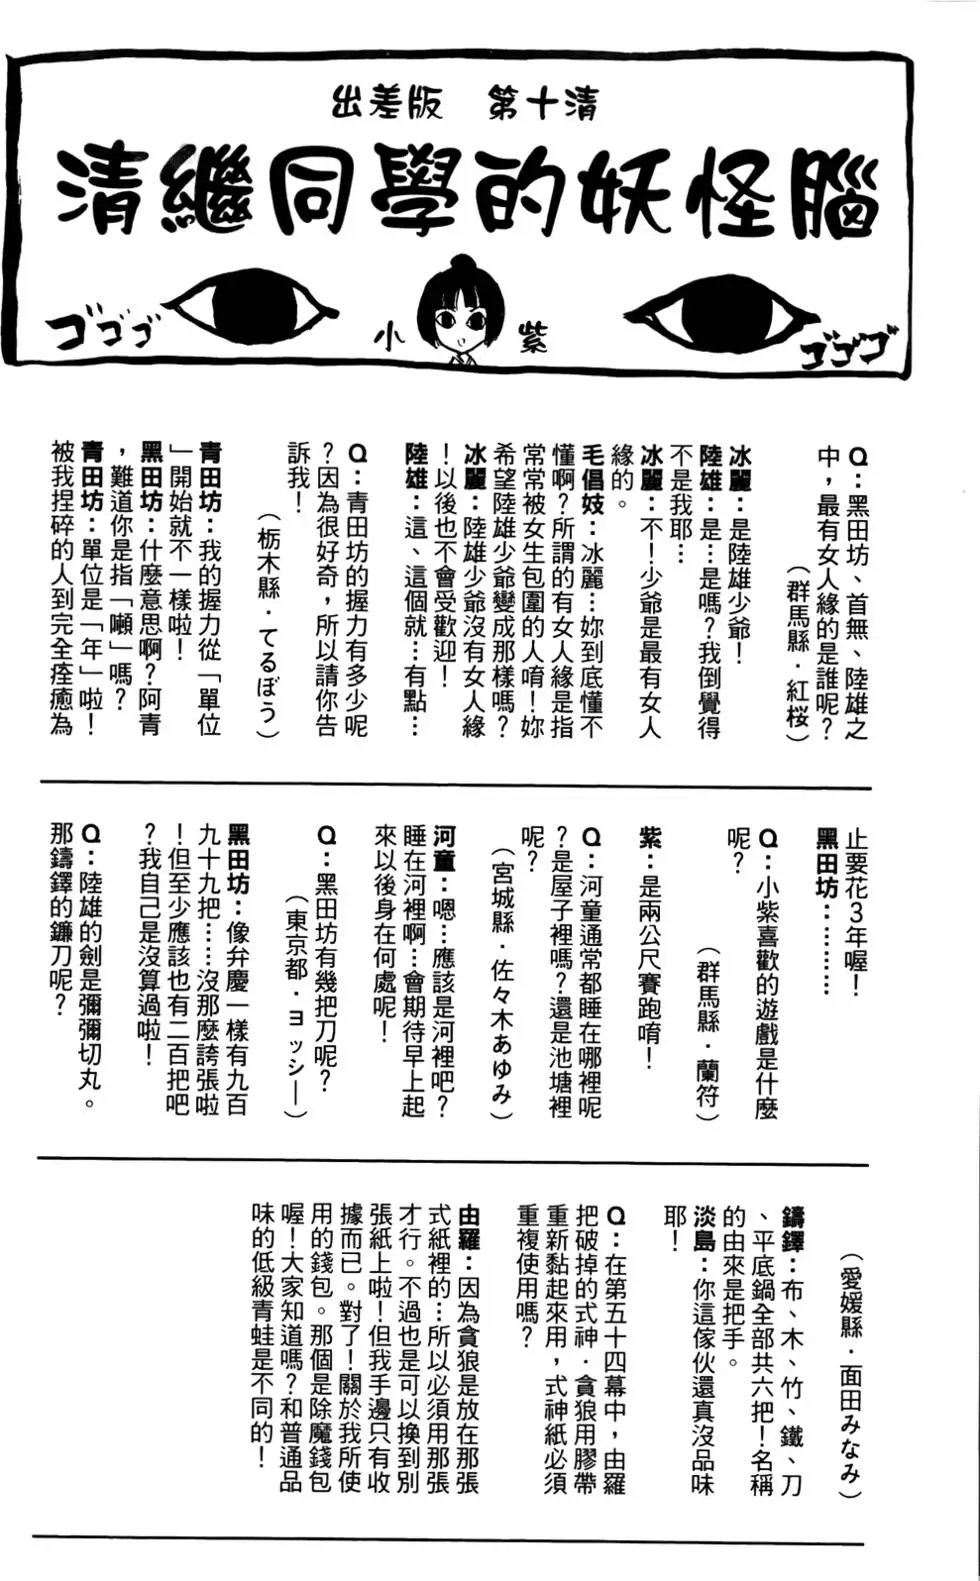 出差版　第十清
清繼同學的妖怪腦
ゴゴゴ
小紫
ゴゴゴ
Q：黑田坊、首無、陸雄之
中，最有女人緣的是誰呢？
（群馬縣．紅桜）
冰麗：是陸雄少爺！
陸雄：是…是嗎？我倒覺得
不是我耶…
冰麗：不！少爺是最有女人
緣的。
毛倡妓：冰麗…妳到底懂不
懂啊？所謂的有女人緣是指
常常被女生包圍的人唷！妳
希望陸雄少爺變成那樣嗎？
冰麗：陸雄少爺沒有女人緣
！以後也不會受歡迎！
陸雄：這、這個就…有點…
Q：青田坊的握力有多少呢
？因為很好奇，所以請你告
訴我！
（栃木縣．てるぼう）
青田坊：我的握力從「單位
」開始就不一樣啦！
黑田坊：什麼意思啊？阿青
，難道你是指「噸」嗎？
青田坊：單位是「年」啦！
被我捏碎的人到完全痊癒為
止要花3年喔！
黑田坊：…………
Q：小紫喜歡的遊戲是什麼
呢？
（群馬縣．蘭符）
紫：是兩公尺賽跑唷！
Q：河童通常都睡在哪裡呢
？是屋子裡嗎？還是池塘裡
呢？
（宮城縣．佐々木あゆみ）
河童：嗯…應該是河裡吧？
睡在河裡啊…會期待早上起
來以後身在何處呢！
Q：黑田坊有幾把刀呢？
（東京都．ヨッシー）
黑田坊：像弁慶一樣有九百
九十九把……沒那麼誇張啦
！但至少應該也有二百把吧
？我自己是沒算過啦！
Q：陸雄的劍是彌彌切丸。
那鑄鐸的鐮刀呢？
（愛媛縣．面田みなみ）
鑄鐸：布、木、竹、鐵、刀
、平底鍋全部共六把！名稱
的由來是把手。
淡島：你這傢伙還真沒品味
耶！
Q：在第五十四幕中，由羅
把破掉的式神．貪狼用膠帶
重新黏起來用，式神紙必須
重複使用嗎？
由羅：因為貪狼是放在那張
式紙裡的…所以必須用那張
才行。不過也是可以換到別
張紙上啦！但我手邊只有收
據而已。對了！關於我所使
用的錢包。那個是除魔錢包
喔！大家知道嗎？和普通品
味的低級青蛙是不同的！